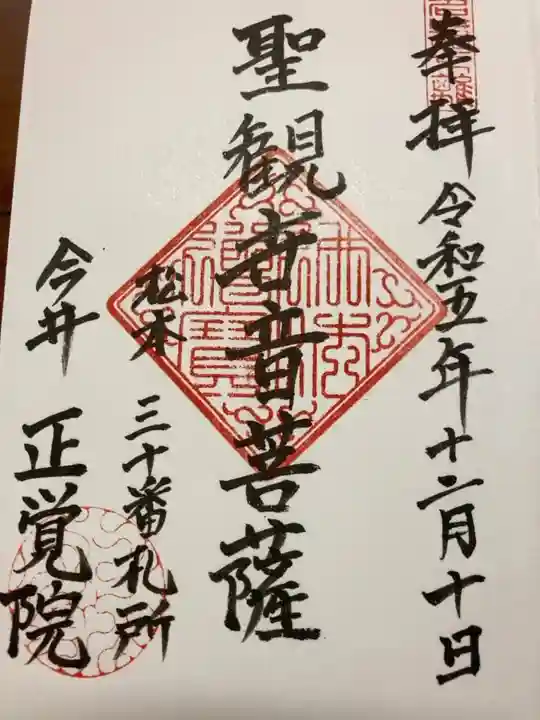 奉拝 令和五年十二月十日
聖観世音菩薩
松本 三十番札所
今井 正覚院